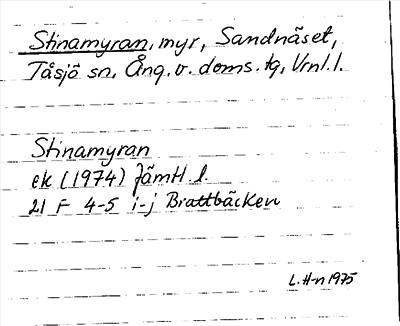 Stinamyran, myr, Sandnäset,
Tåsjö sn, Ång. v. doms. tg, Vrnl. l.
Stinamyran
ek (1974) Jämtl. l.
21 F 4-5 i-j Brattbäcken
L. H-n 1975